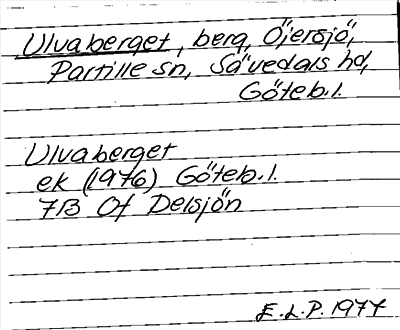 Ulvaberget, berg, Öjersjö,
Partille sn, Sävedals hd,
Göteb.l.
Ulvaberget
ek (1976) Göteb.l.
7B Of Delsjön
E.L.P. 1977